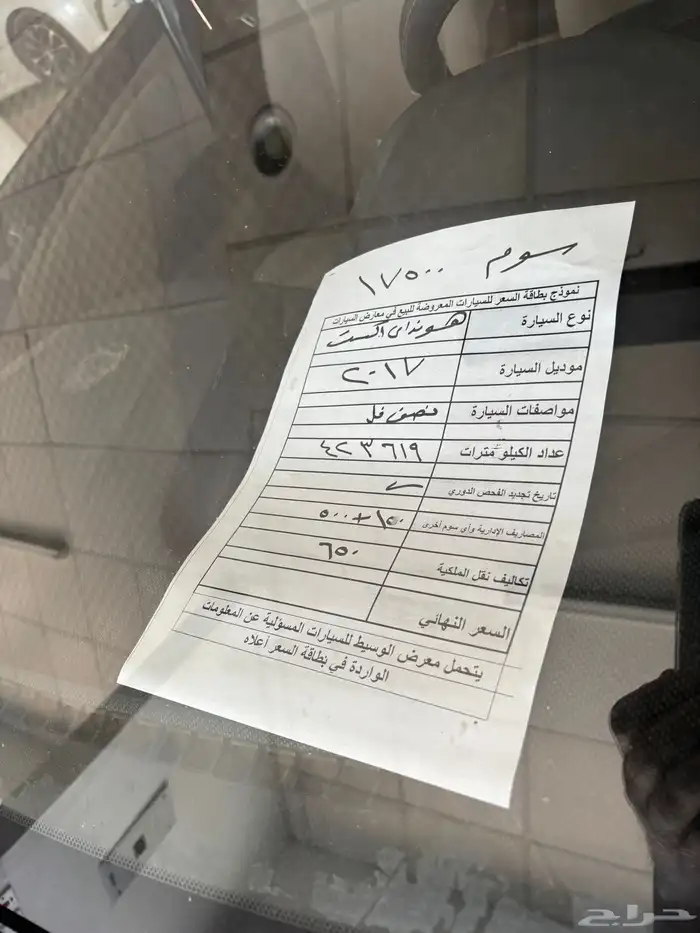 سوم ١٧٥٠٠
نموذج بطاقة السعر للسيارات المعروضة للبيع في معارض السيارات
نوع السيارة هونداي اكسنت
موديل السيارة ٢٠١٧
مواصفات السيارة نصف فل
عداد الكيلو مترات ٤٢٣٦١٩
تاريخ تجديد الفحص الدوري
المصاريف الإدارية وأي سوم أخرى ١٥٠+٥٠٠
تكاليف نقل الملكية ٦٥٠
السعر النهائي
يتحمل معرض الوسيط للسيارات المسؤلية عن المعلومات
الواردة في بطاقة السعر أعلاه
حراج